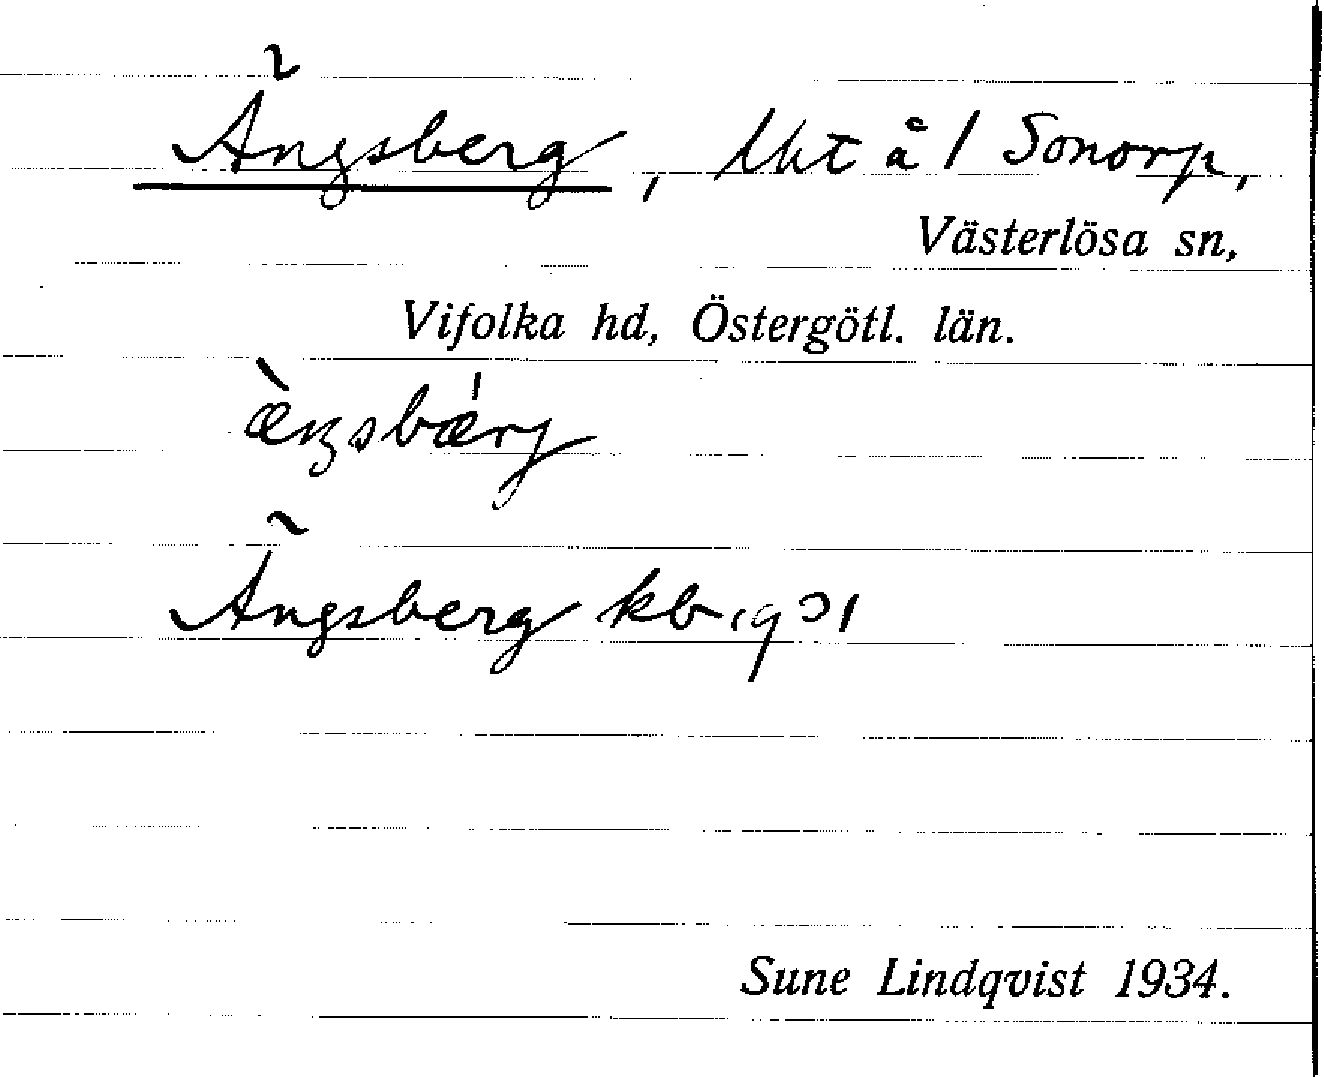 Ängsberg, lht å 1 Sonorp,
Västerlösa sn,
Vifolka hd, Östergötl. län.
æ̀ŋsbǽrj
Ängsberg kb 1931
Sune Lindqvist 1934.